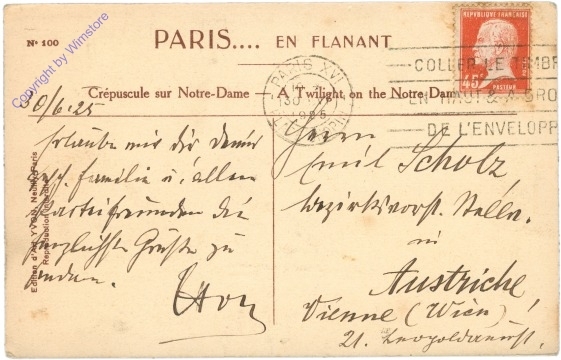 Copyright by Wimstore
Nº 100
PARIS.... EN FLANANT
Crépuscule sur Notre-Dame — A Twilight on the Notre Dame
REPUBLIQUE FRANÇAISE
45c
PASTEUR
PARIS XVII
1925
COLLER LE TIMBR
EN HAUT & A DRO
DE L'ENVELOPP
30/6.25
Erlaube mir dir deiner
Familie u. allen
Parteifreunden die
herzlichste Grüße zu
senden.
Herrn
Emil Scholz
Bezirksvorst. Stellv.
in
Austriche!
Vienne (Wien)
21.
Edition d'Art YVON, Neuilly-Paris
Reproduction interdite